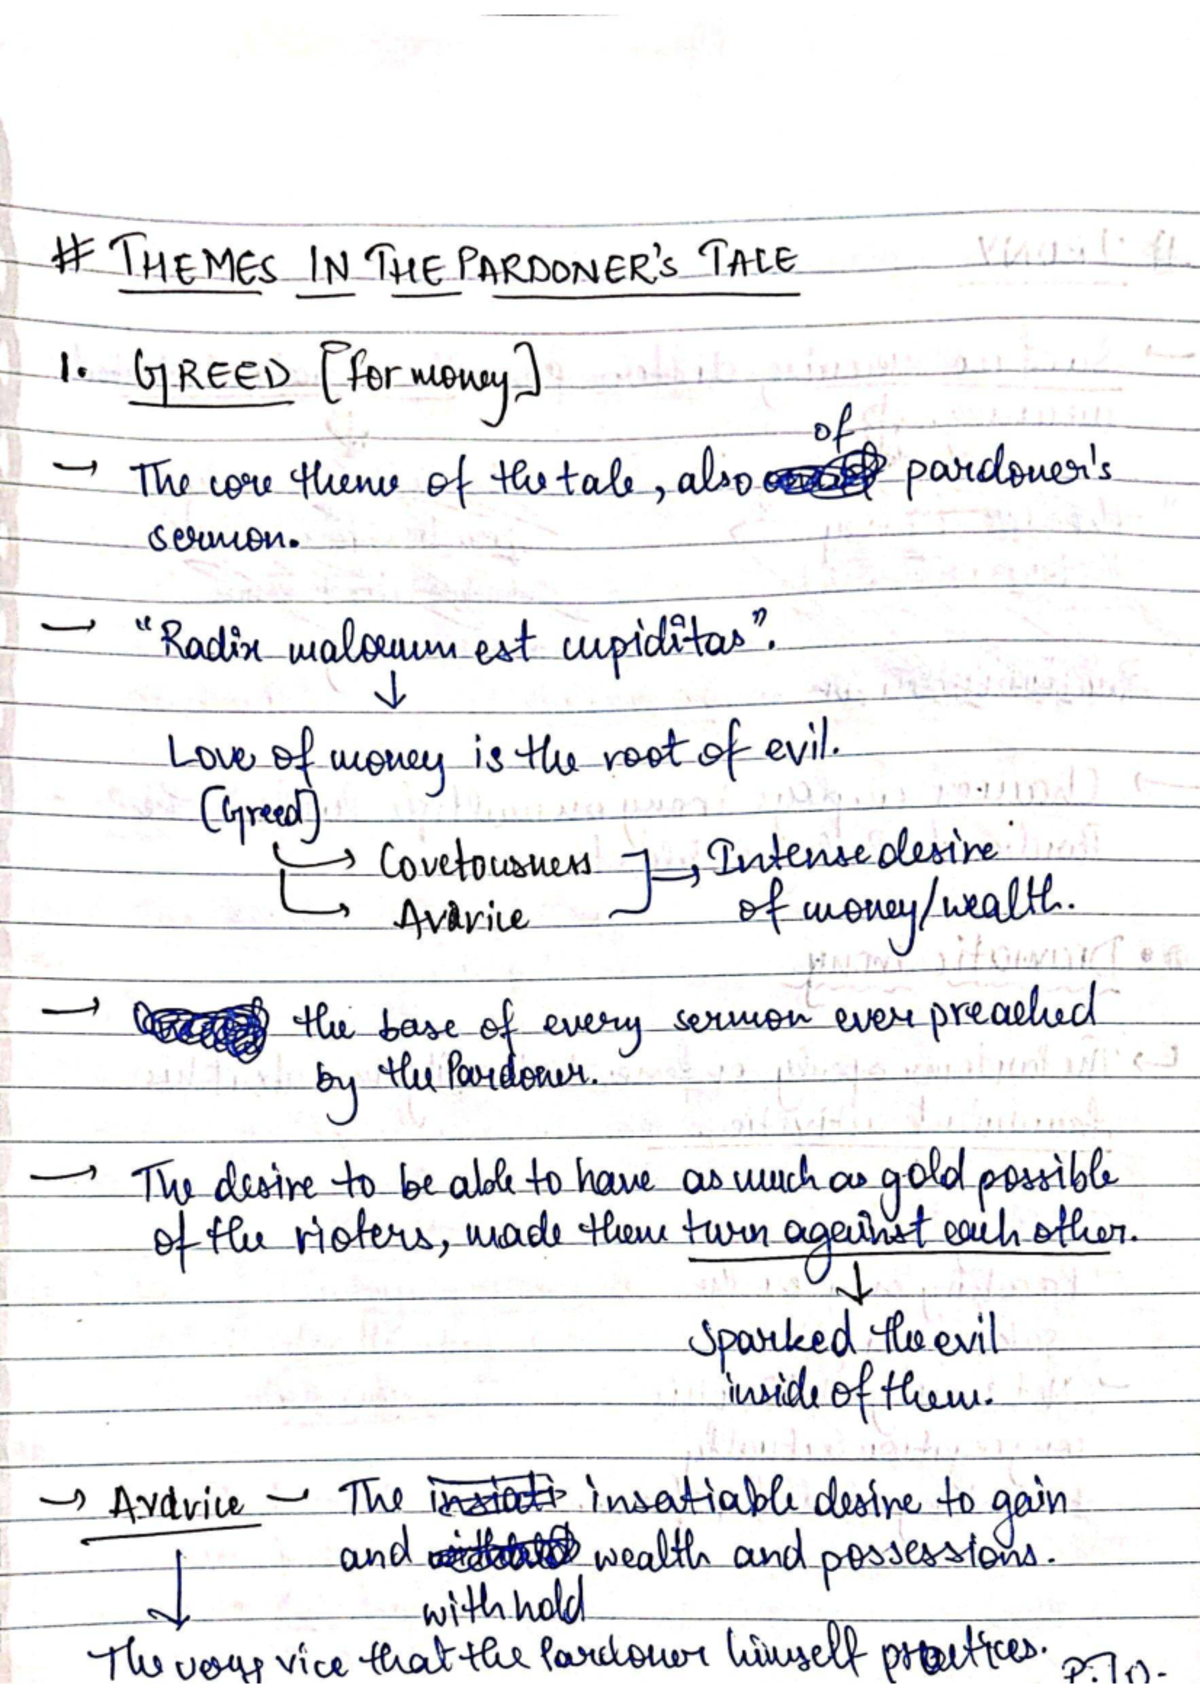 # THEMES IN THE PARDONER'S TALE
1. GREED [for money]
→ The core theme of the tale, also of pardoner's
sermon.
→ "Radix malorum est cupiditas".
↓
Love of money is the root of evil.
[Greed]
→ Covetousness → Intense desire
→ Avarice of money/wealth.
→ the base of every sermon ever preached
by the Pardoner.
→ The desire to be able to have as much as gold possible
of the rioters, made them turn against each other.
↓
Sparked the evil
inside of them.
→ Avarice – The insatiable desire to gain
and withhold wealth and possessions.
↓
The very vice that the Pardoner himself practices.
P.T.O.